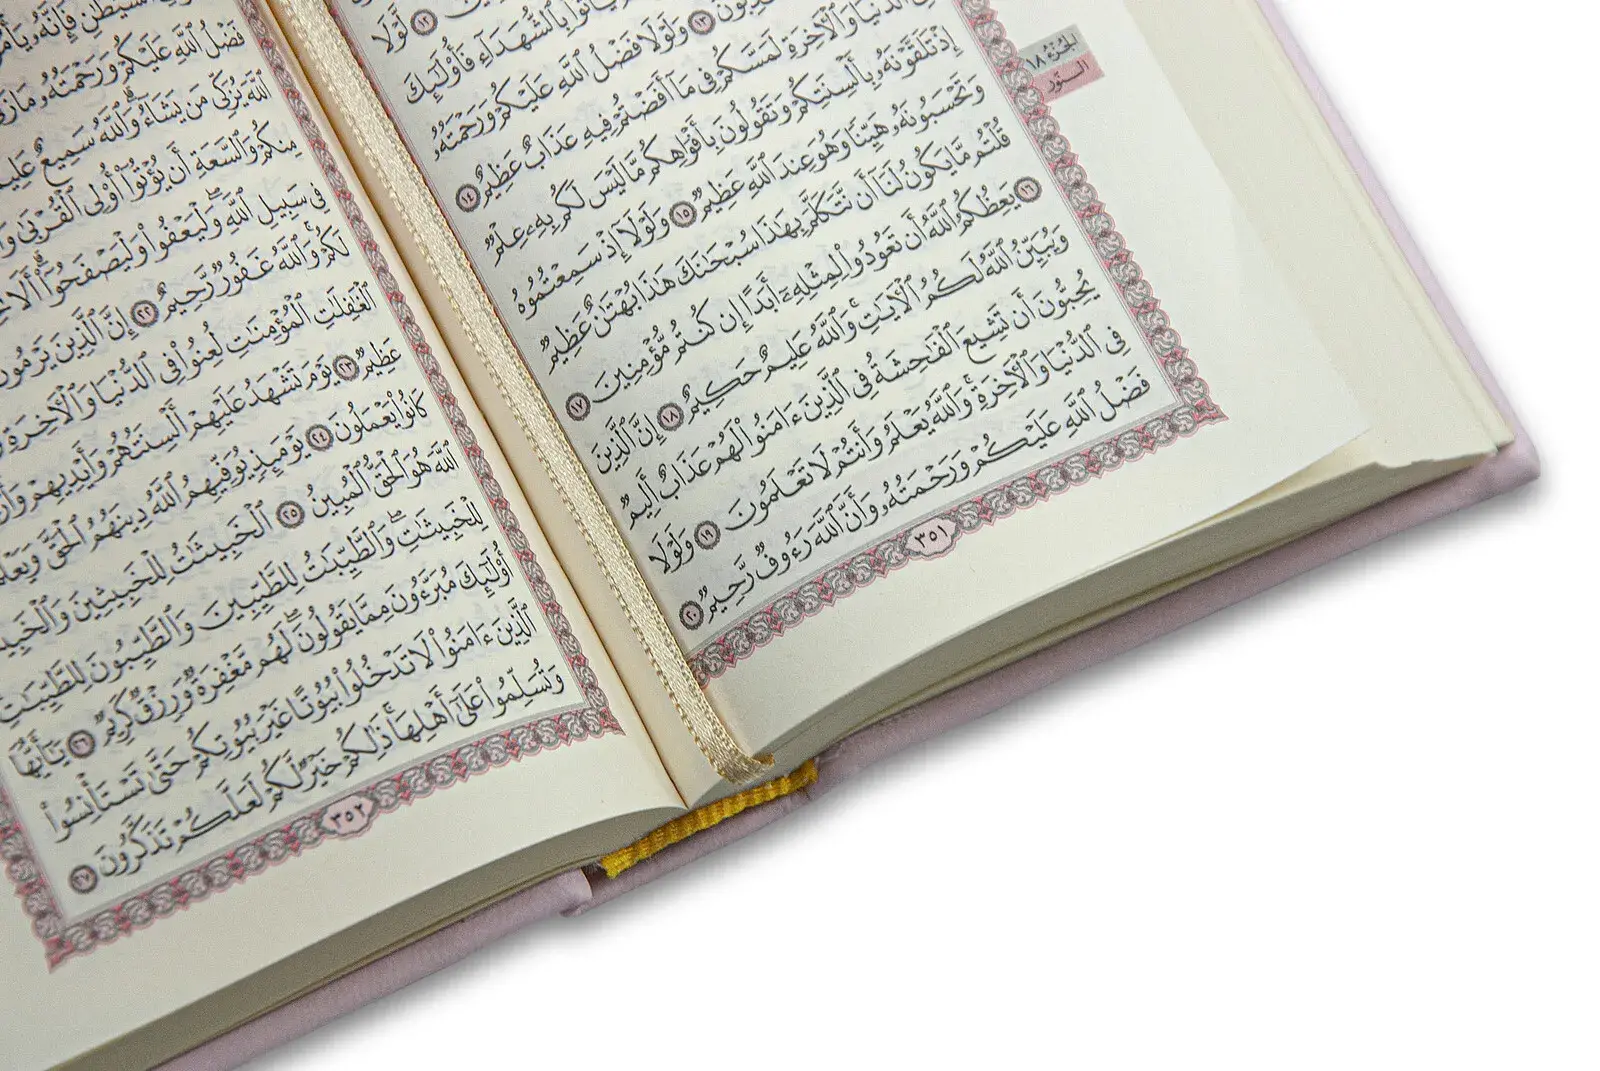 ١٢ لَّوْلَا
بِٱلشُّهَدَآءِ فَأُو۟لَـٰٓئِكَ
١٣ وَلَوْلَا فَضْلُ ٱللَّهِ عَلَيْكُمْ وَرَحْمَتُهُۥ
ٱلدُّنْيَا وَٱلْـَٔاخِرَةِ لَمَسَّكُمْ فِى مَآ أَفَضْتُمْ فِيهِ عَذَابٌ عَظِيمٌ ١٤
إِذْ تَلَقَّوْنَهُۥ بِأَلْسِنَتِكُمْ وَتَقُولُونَ بِأَفْوَاهِكُم مَّا لَيْسَ لَكُم بِهِۦ عِلْمٌ
وَتَحْسَبُونَهُۥ هَيِّنًا وَهُوَ عِندَ ٱللَّهِ عَظِيمٌ ١٥ وَلَوْلَآ إِذْ سَمِعْتُمُوهُ
قُلْتُم مَّا يَكُونُ لَنَآ أَن نَّتَكَلَّمَ بِهَـٰذَا سُبْحَـٰنَكَ هَـٰذَا بُهْتَـٰنٌ عَظِيمٌ
١٦ يَعِظُكُمُ ٱللَّهُ أَن تَعُودُوا۟ لِمِثْلِهِۦٓ أَبَدًا إِن كُنتُم مُّؤْمِنِينَ ١٧
وَيُبَيِّنُ ٱللَّهُ لَكُمُ ٱلْـَٔايَـٰتِ وَٱللَّهُ عَلِيمٌ حَكِيمٌ ١٨ إِنَّ ٱلَّذِينَ
يُحِبُّونَ أَن تَشِيعَ ٱلْفَـٰحِشَةُ فِى ٱلَّذِينَ ءَامَنُوا۟ لَهُمْ عَذَابٌ أَلِيمٌ
فِى ٱلدُّنْيَا وَٱلْـَٔاخِرَةِ وَٱللَّهُ يَعْلَمُ وَأَنتُمْ لَا تَعْلَمُونَ ١٩ وَلَوْلَا
فَضْلُ ٱللَّهِ عَلَيْكُمْ وَرَحْمَتُهُۥ وَأَنَّ ٱللَّهَ رَءُوفٌ رَّحِيمٌ ٢٠
٣٥١
الجزء ١٨
النّور
ٱلشَّيْطَـٰنِ فَإِنَّهُۥ
فَضْلُ ٱللَّهِ عَلَيْكُمْ وَرَحْمَتُهُۥ مَا
ٱللَّهَ يُزَكِّى مَن يَشَآءُ وَٱللَّهُ سَمِيعٌ
مِنكُمْ وَٱلسَّعَةِ أَن يُؤْتُوٓا۟ أُو۟لِى ٱلْقُرْبَىٰ
فِى سَبِيلِ ٱللَّهِ وَلْيَعْفُوا۟ وَلْيَصْفَحُوٓا۟ أَلَا
لَكُمْ وَٱللَّهُ غَفُورٌ رَّحِيمٌ ٢٢ إِنَّ ٱلَّذِينَ يَرْمُونَ
ٱلْغَـٰفِلَـٰتِ ٱلْمُؤْمِنَـٰتِ لُعِنُوا۟ فِى ٱلدُّنْيَا وَٱلْـَٔاخِرَةِ
عَظِيمٌ ٢٣ يَوْمَ تَشْهَدُ عَلَيْهِمْ أَلْسِنَتُهُمْ وَأَيْدِيهِمْ
كَانُوا۟ يَعْمَلُونَ ٢٤ يَوْمَئِذٍ يُوَفِّيهِمُ ٱللَّهُ دِينَهُمُ ٱلْحَقَّ
ٱللَّهَ هُوَ ٱلْحَقُّ ٱلْمُبِينُ ٢٥ ٱلْخَبِيثَـٰتُ لِلْخَبِيثِينَ
لِلْخَبِيثَـٰتِ وَٱلطَّيِّبَـٰتُ لِلطَّيِّبِينَ وَٱلطَّيِّبُونَ لِلطَّيِّبَـٰتِ
أُو۟لَـٰٓئِكَ مُبَرَّءُونَ مِمَّا يَقُولُونَ لَهُم مَّغْفِرَةٌ وَرِزْقٌ كَرِيمٌ ٢٦ يَـٰٓأَيُّهَا
ٱلَّذِينَ ءَامَنُوا۟ لَا تَدْخُلُوا۟ بُيُوتًا غَيْرَ بُيُوتِكُمْ حَتَّىٰ تَسْتَأْنِسُوا۟
وَتُسَلِّمُوا۟ عَلَىٰٓ أَهْلِهَا ذَٰلِكُمْ خَيْرٌ لَّكُمْ لَعَلَّكُمْ تَذَكَّرُونَ ٢٧
٣٥٢